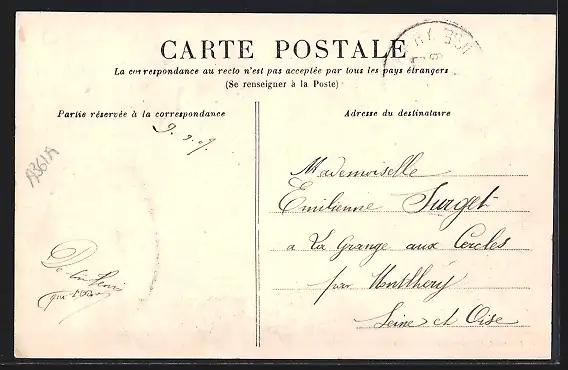 CARTE POSTALE
La correspondance au recto n'est pas acceptée par tous les pays étrangers
(Se renseigner à la Poste)
Partie réservée à la correspondance
Adresse du destinataire
9. 9. 07
A361A
Mademoiselle
Emilienne Surget
a La Grange aux Cercles
par Montlhéry
Seine et Oise
De ton
qui